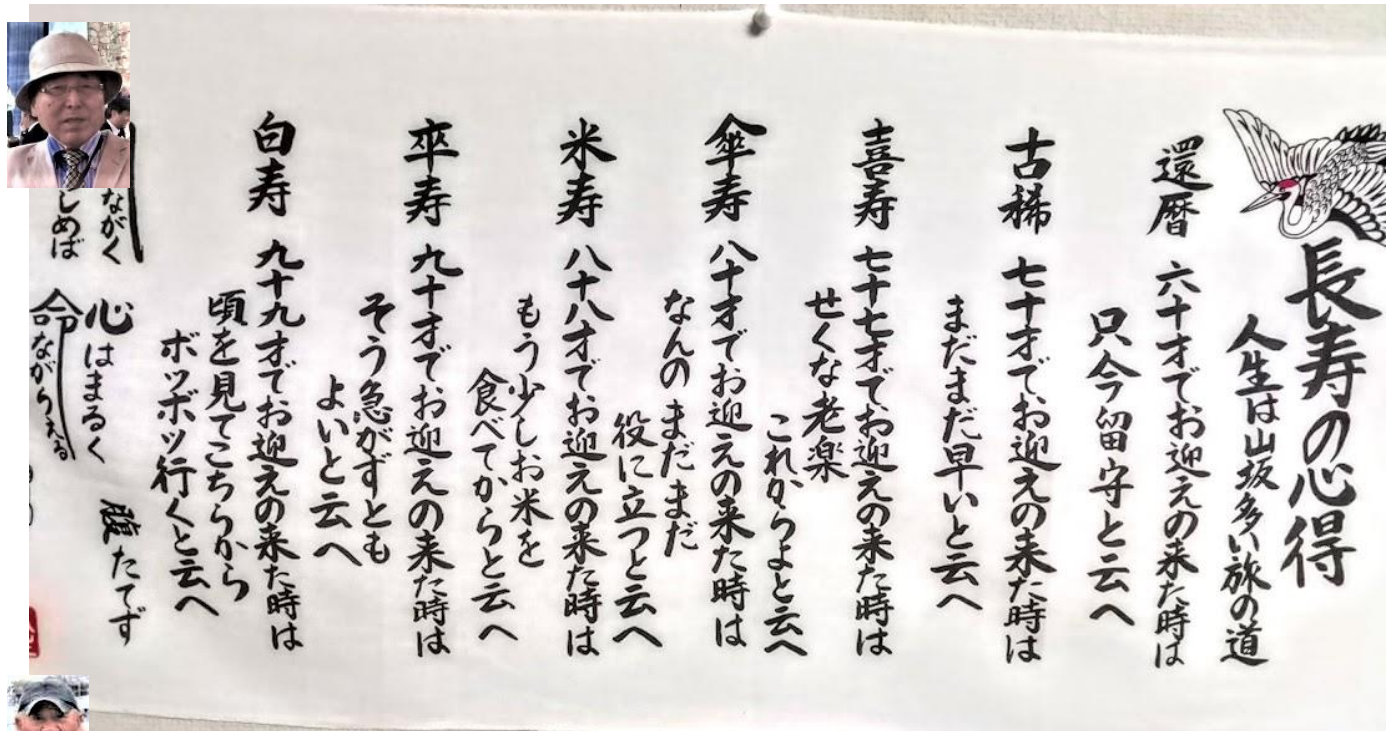 長寿の心得
人生は山坂多い旅の道
還暦 六十才でお迎えの来た時は
只今留守と云へ
古稀 七十才でお迎えの来た時は
まだまだ早いと云へ
喜寿 七十七才でお迎えの来た時は
せくな老楽
これからよと云へ
傘寿 八十才でお迎えの来た時は
なんのまだまだ
役に立つと云へ
米寿 八十八才でお迎えの来た時は
もう少しお米を
食べてからと云へ
卒寿 九十才でお迎えの来た時は
そう急がずとも
よいと云へ
白寿 九十九才でお迎えの来た時は
頃を見てこちらから
ボツボツ行くと云へ
ながく
心はまるく
腹たてず
しめば
命ながらえる